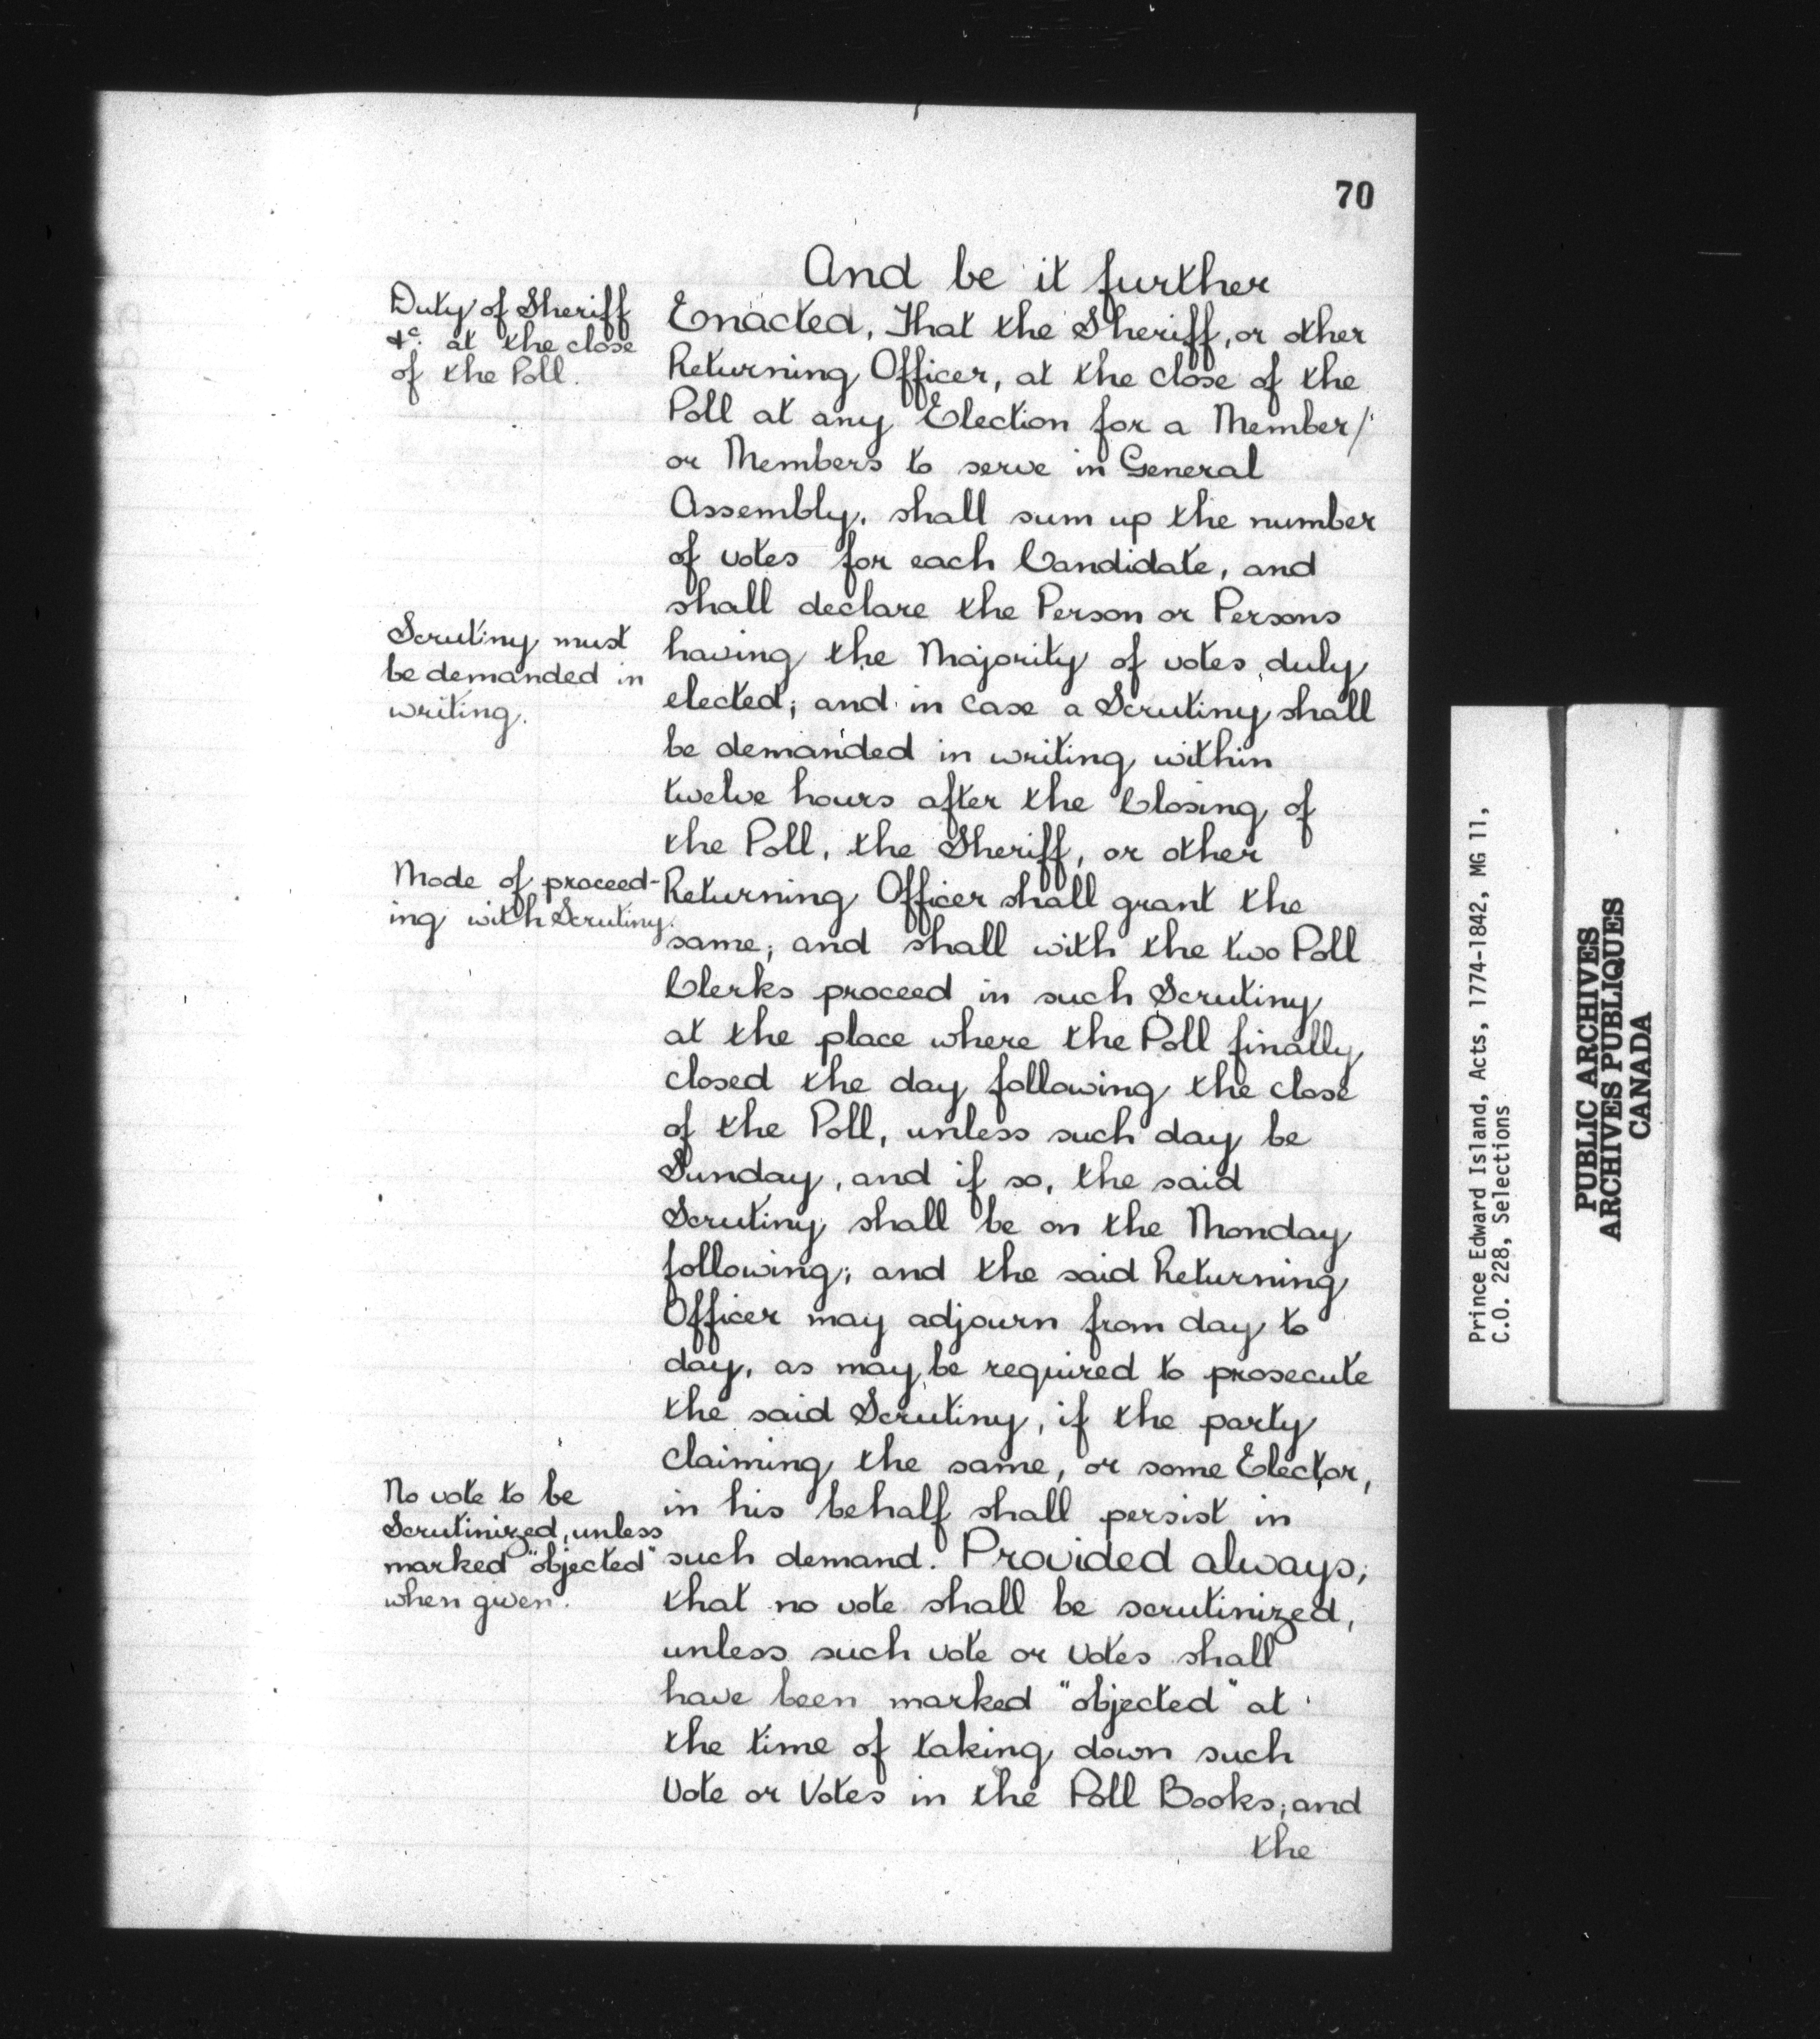 70
And be it further
Duty of Sheriff
&c. at the close
of the Poll.
Enacted, That the Sheriff, or other
Returning Officer, at the close of the
Poll at any Election for a Member/
or Members to serve in General
Assembly, shall sum up the number
of votes for each Candidate, and
shall declare the Person or Persons
Scrutiny must
be demanded in
writing.
having the Majority of votes, duly
elected; and in case a Scrutiny shall
be demanded in writing within
twelve hours after the Closing of
the Poll, the Sheriff, or other
Mode of proceed-
ing with Scrutiny.
Returning Officer shall grant the
same; and shall with the two Poll
Clerks proceed in such Scrutiny
at the place where the Poll finally
closed the day following the close
of the Poll, unless such day be
Sunday, and if so, the said
Scrutiny shall be on the Monday
following; and the said Returning
Officer may adjourn from day to
day, as may be required to prosecute
the said Scrutiny, if the party
claiming the same, or some Elector,
No vote to be
Scrutinized, unless
marked "objected"
when given.
in his behalf shall persist in
such demand. Provided always;
that no vote shall be scrutinized,
unless such vote or votes shall
have been marked "objected" at
the time of taking down such
Vote or Votes in the Poll Books; and
the
Prince Edward Island, Acts, 1774-1842, MG 11,
C.O. 228, Selections
PUBLIC ARCHIVES
ARCHIVES PUBLIQUES
CANADA